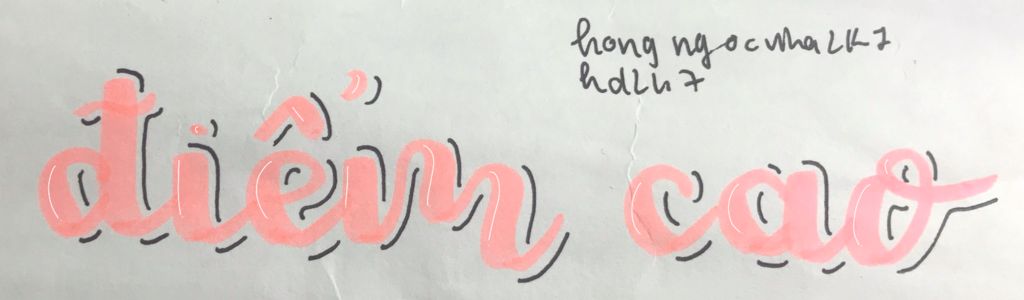 hong ngocnha2k7
hd2k7
điểm cao